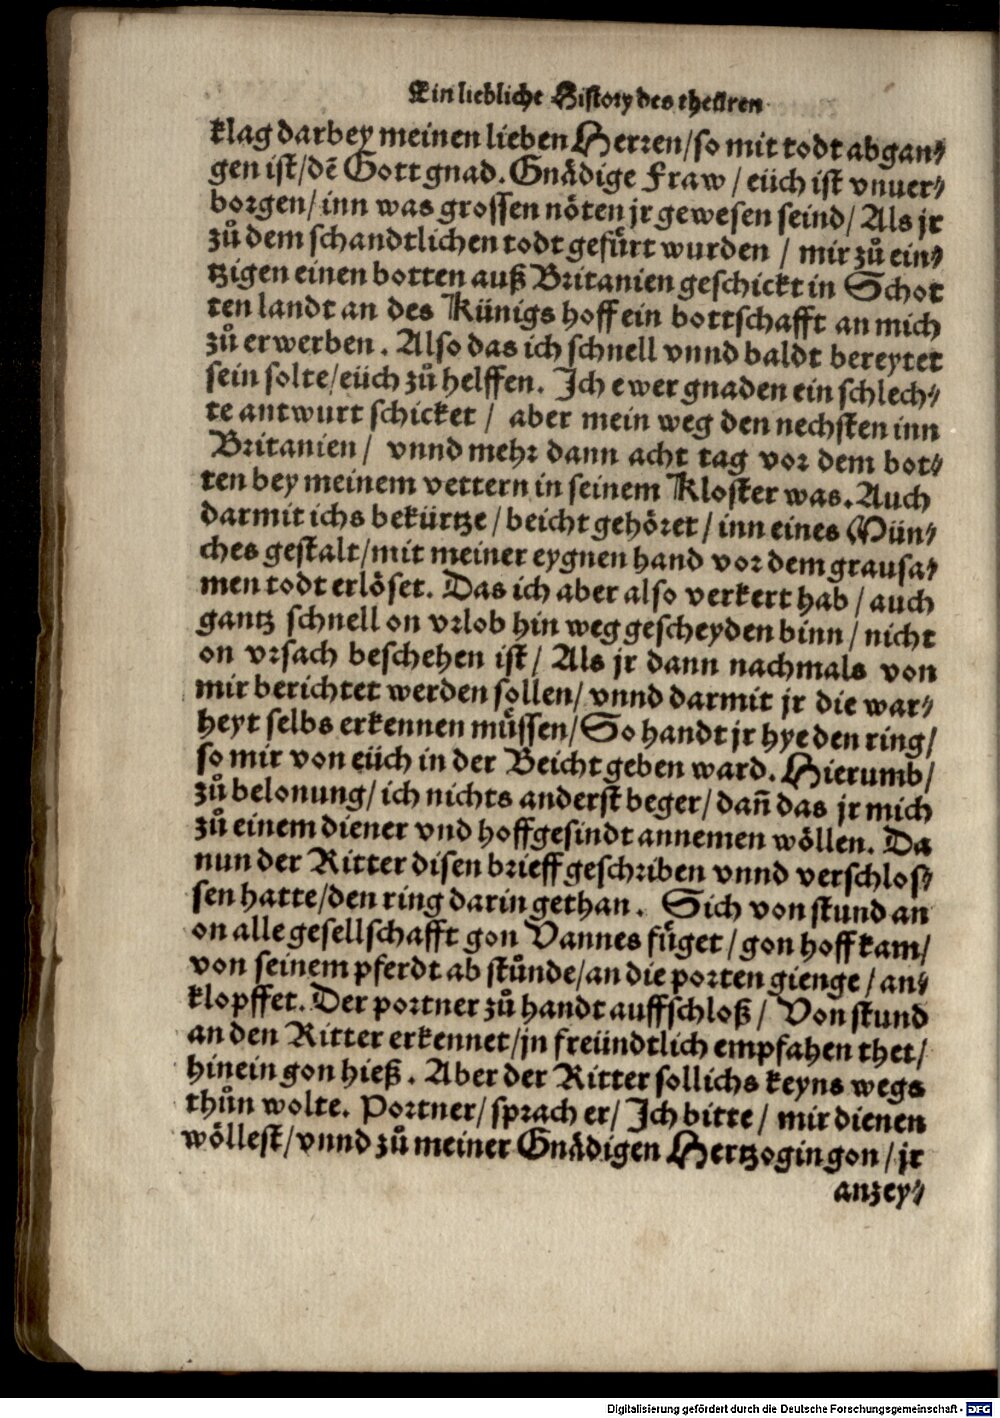 Ein liebliche History des theüren
klag darbey meinen lieben Herren/so mit todt abgan⸗
gen ist/dē Gott gnad. Gnädige Fraw / eüch ist vnuer⸗
borgen/ inn was grossen nöten jr gewesen seind/ Als jr
zuͦ dem schandtlichen todt gefuͤrt wurden / mir zuͦ ein⸗
tzigen einen botten auß Britanien geschickt in Schot
ten landt an des Künigs hoff ein bottschafft an mich
zuͦ erwerben. Also das ich schnell vnnd baldt bereytet
sein solte/eüch zuͦ helffen. Ich ewer gnaden ein schlech⸗
te antwurt schicket / aber mein weg den nechsten inn
Britanien / vnnd mehr dann acht tag vor dem bot⸗
ten bey meinem vettern in seinem Kloster was. Auch
darmit ichs bekürtze / beicht gehöret / inn eines Mün⸗
ches gestalt/mit meiner eygnen hand vor dem grausa⸗
men todt erlöset. Das ich aber also verkert hab / auch
gantz schnell on vrlob hin weg gescheyden binn / nicht
on vrsach beschehen ist / Als jr dann nachmals von
mir berichtet werden sollen/ vnnd darmit jr die war⸗
heyt selbs erkennen muͤssen/ So handt jr hye den ring/
so mir von eüch in der Beicht geben ward. Hierumb/
zuͦ belonung/ ich nichts anderst beger/ dañ das jr mich
zuͦ einem diener vnd hoffgesindt annemen wöllen. Da
nun der Ritter disen brieff geschriben vnnd verschlos⸗
sen hatte/den ring darin gethan. Sich von stund an
on alle gesellschafft gon Vannes fuͤget / gon hoff kam/
von seinem pferdt ab stuͦnde/an die porten gienge / an⸗
klopffet. Der portner zuͦ handt auffschloß / Von stund
an den Ritter erkennet/jn freündtlich empfahen thet/
hinein gon hieß. Aber der Ritter sollichs keyns wegs
thuͦn wolte. Portner/ sprach er/ Ich bitte / mir dienen
wöllest/vnnd zuͦ meiner Gnädigen Hertzogin gon / jr
anzey⸗
Digitalisierung gefördert durch die Deutsche Forschungsgemeinschaft - DFG